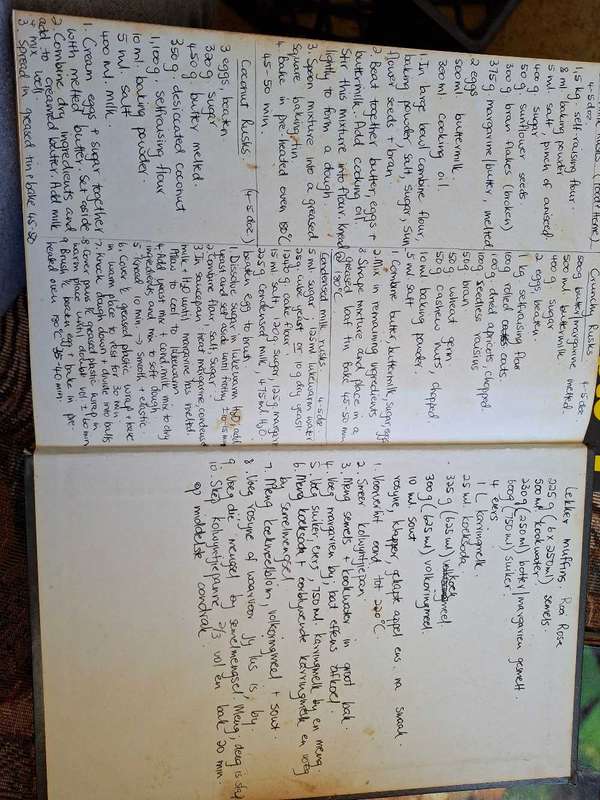 4-5 doz
1,5 kg self raising flour.
8 ml baking powder
5 ml salt, pinch of aniseed
400 g sugar
50 g sunflower seeds
300 g bran flakes (broken)
375 g margarine/butter, melted
2 eggs
500 ml buttermilk
300 ml cooking oil.
1. In large bowl combine flour,
baking powder, salt, sugar, sun
flower seeds + bran.
2 Beat together butter, eggs +
buttermilk. Add cooking oil.
Stir this mixture into flour. Knead
lightly to form a dough.
3. Spoon mixture into a greased
square baking tin
4. bake in pre-heated oven 180°C
45-50 min.
Coconut Rusks (4-5 doz)
3 eggs beaten
320 g sugar
450 g butter melted
350 g desiccated coconut
1,100 g selfraising flour
10 ml baking powder.
5 ml salt
400 ml milk.
1. Cream eggs + sugar together
with melted butter. Set aside
2 Combine dry ingredients and
add to creamed butter. Add milk
+ mix well
3. Spread in greased tin + bake 45-50
Crunchy Rusks 4-5 doz
500 g butter/margarine melted.
500 ml buttermilk
400 g sugar
2 eggs beaten
1 kg selfraising flour
100 g rolled oats
100 g dried apricots, chopped.
100 g seedless raisins
50 g bran
50 g wheat germ
50 g cashew nuts, chopped.
10 ml baking powder.
5 ml salt
1. Combine butter, buttermilk, sugar, eggs
2 Mix in remaining ingredients
3 Shape mixture and place in a
greased loaf tin bake 45-50 min
180°C
Condensed milk rusks 4-5 doz
5 ml sugar, 125 ml lukewarm water
25 g cake yeast or 10 g dry yeast
1240 g cake flour.
15 ml salt, 120 g sugar, 125 g margarine
225 g condensed milk, 475 ml H₂O
beaten egg to brush.
1. Dissolve sugar in lukewarm H₂O, add
yeast and set aside until frothy ± 10-15 min
2 Combine flour, salt + sugar
3 In saucepan, heat margarine, condensed
milk + H₂O until margarine has melted.
Allow to cool to lukewarm
4 Add yeast mix + cond. milk mix to dry
ingredients and mix to soft dough
5 Knead 10 min. → smooth + elastic
6. Cover c̄ greased plastic wrap + leave
in warm place to rise for 30 min
7. Knock dough down + divide into balls
8 Cover pans c̄ greased plastic wrap in
warm place until double vol ± 40 min
9 Brush c̄ beaten egg, bake in pre-
heated oven 180°C 35-40 min.
Lekker muffins Rooi Rose
225 g (6 x 250 ml) semels
500 ml kookwater
230 g (250 ml) botter/margarien gesmelt.
600 g (750 ml) suiker.
4 eiers
1 l karringmelk.
25 ml koeksoda
325 g (625 ml) koekmeel
300 g (625 ml) volkoringmeel
10 ml sout
rosyne, klapper, gekapte appel ens. na smaak.
1. Voorverhit oond tot 220°C.
2 Smeer kolwyntjiepan
3. Meng semels + kookwater in groot bak.
4. Voeg margarien by, laat effens afkoel.
5 Voeg suiker, eiers, 750 ml karringmelk by en meng.
6. Meng koeksoda + oorblywende karringmelk en voeg
by semelmengsel
7. Meng koekmeelblom, volkoringmeel + sout.
8. Voeg rosyne of waarvoor jy lus is, by.
9 Voeg die mengsel by semelmengsel. Meng, deeg is slap
10. Skep kolwyntjiepanne, 2/3 vol en bak 20 min.
op middelste oondrak.